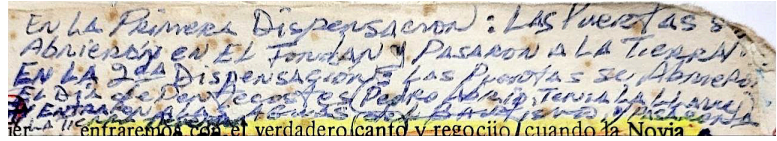 EN LA PRIMERA DISPENSACION: LAS PUERTAS S
ABRIERON EN EL JORDAN Y PASARON A LA TIERRA
EN LA 2da DISPENSACION LAS PUERTAS SE ABRIERO
EL DIA de PENTECOSTES (PEDRO ABRIO, TENIA LA LLAVE)
Y ENTRARON A LAS AGUAS DEL BAUTISMO Y
LA TIERRA
entraremos con el verdadero canto y regocijo cuando la Novia